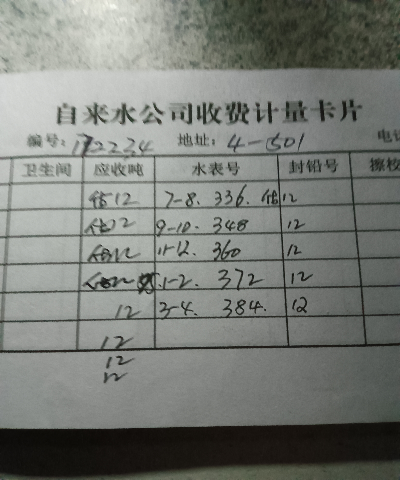 自来水公司收费计量卡片
编号: 172234 地址: 4-501 电
卫生间 应收吨 水表号 封铅号 擦校
估12 7-8. 336. 估12
估12 9-10. 348 12
估12 11-12. 360 12
估12 1-2. 372 12
12 3-4. 384. 12
12
12
12